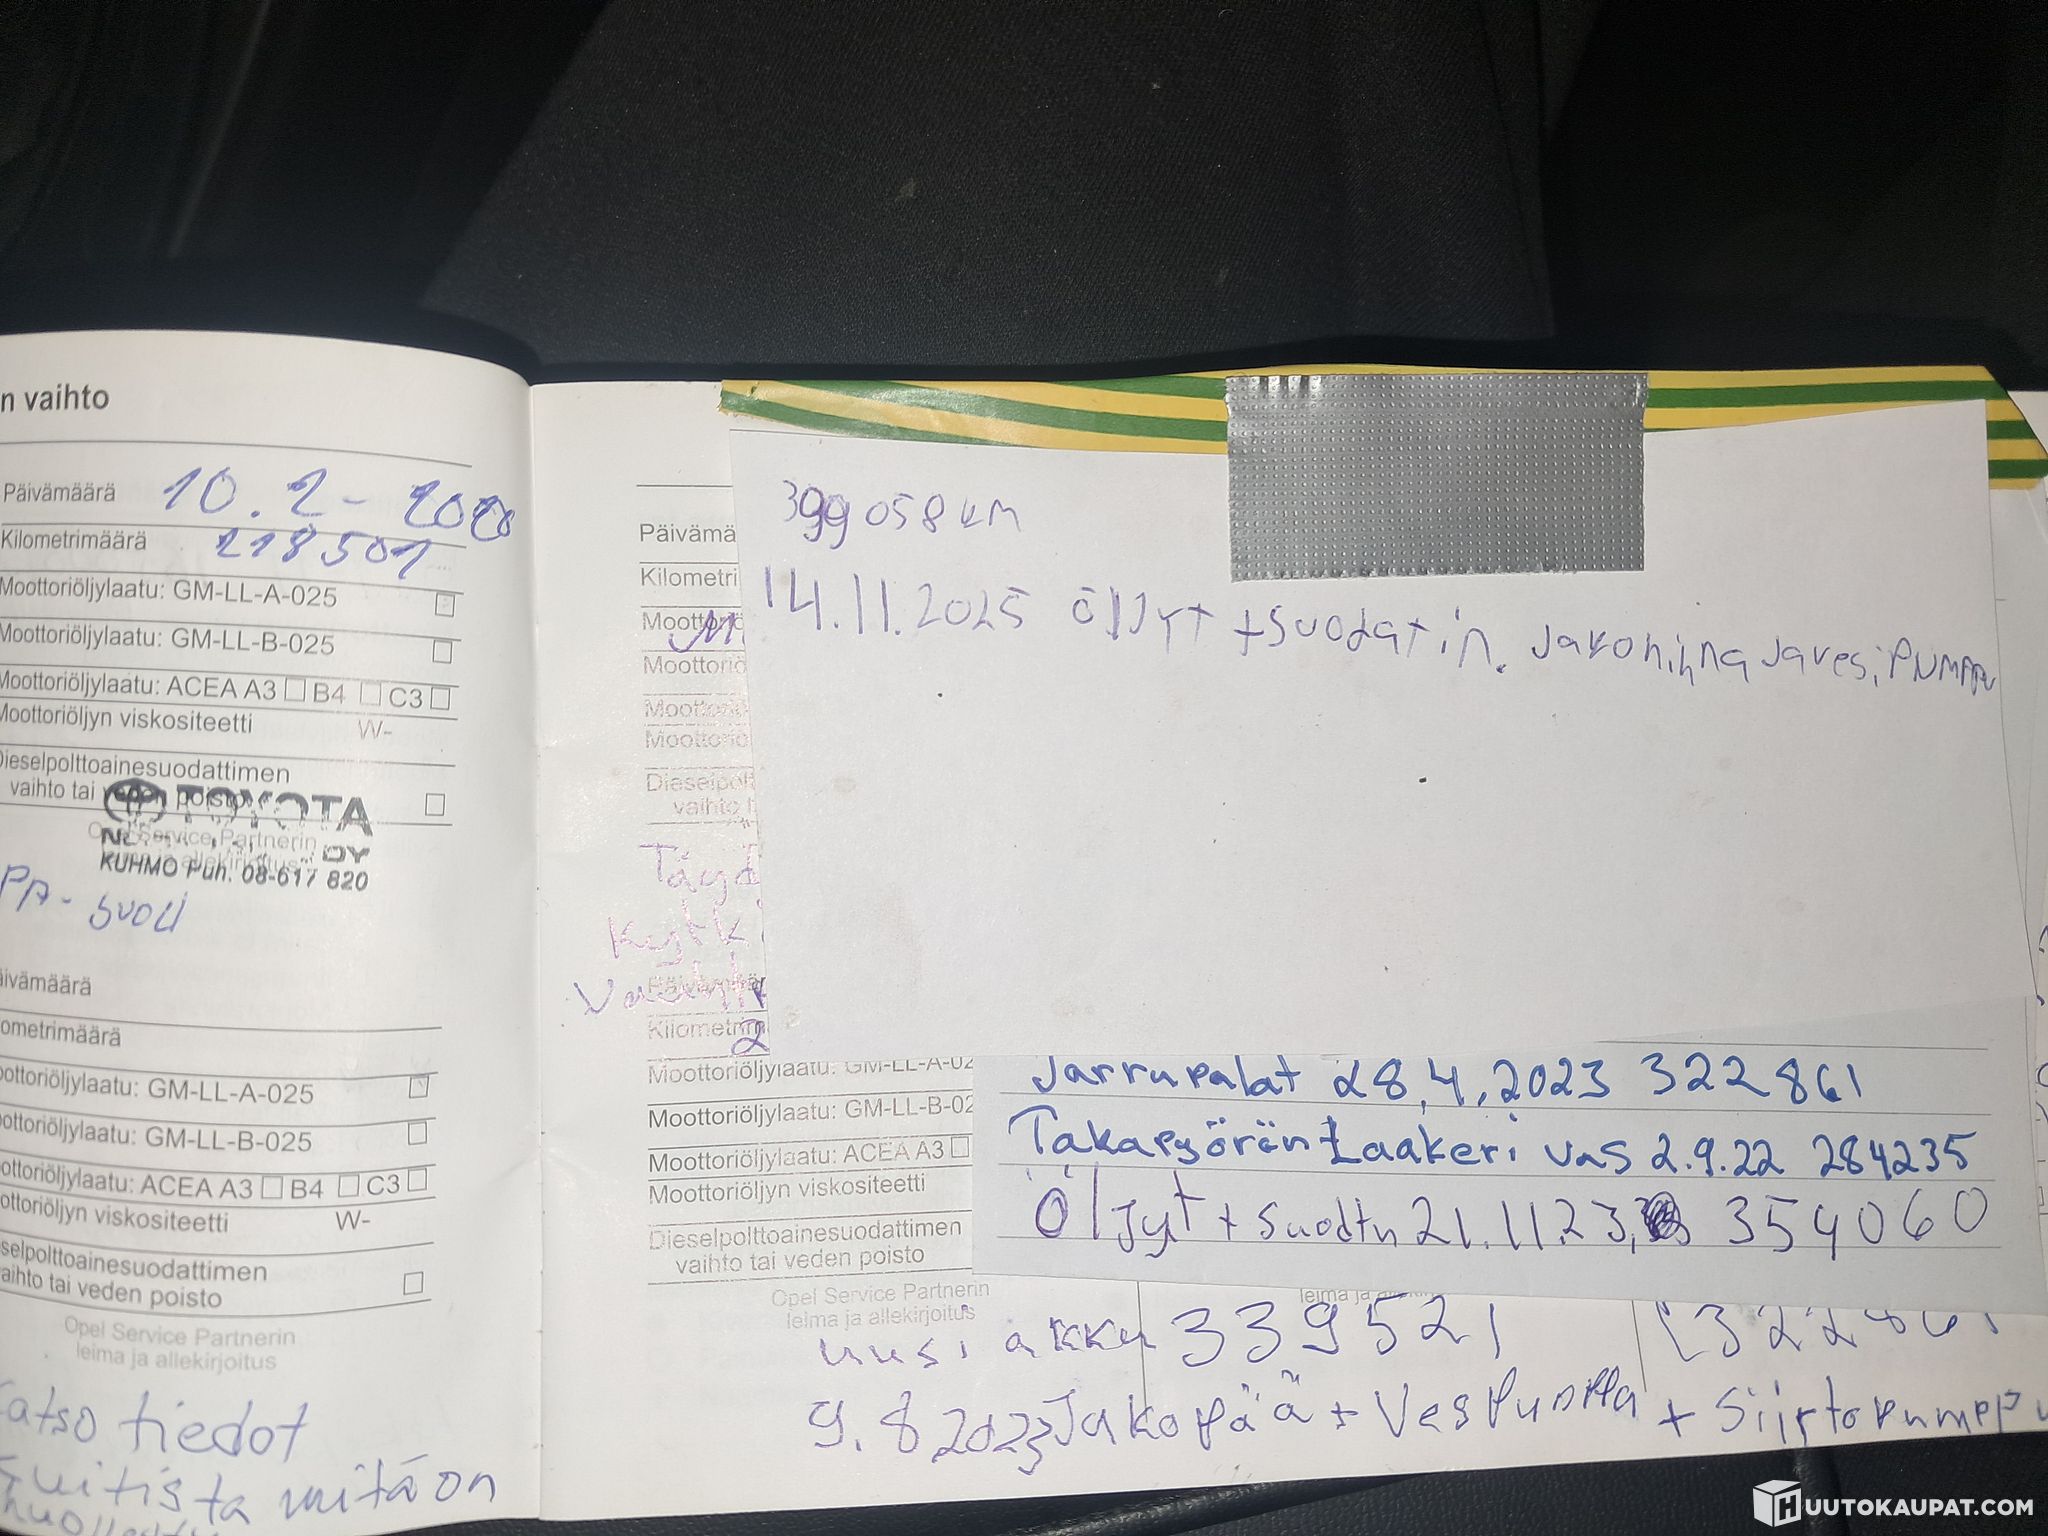 n vaihto
Päivämäärä 10.2-2020
Kilometrimäärä 218501
Moottoriöljylaatu: GM-LL-A-025
Moottoriöljylaatu: GM-LL-B-025
Moottoriöljylaatu: ACEA A3 B4 C3
Moottoriöljyn viskositeetti W-
Dieselpolttoainesuodattimen
vaihto tai veden poisto
TOYOTA
Opel Service Partnerin
OY
KUHMO Puh. 08-617 820
PA-SUOLI
äivämäärä
ometrimäärä
oottoriöljylaatu: GM-LL-A-025
oottoriöljylaatu: GM-LL-B-025
ottoriöljylaatu: ACEA A3 B4 C3
ottoriöljyn viskositeetti W-
selpolttoainesuodattimen
aihto tai veden poisto
Opel Service Partnerin
leima ja allekirjoitus
atso tiedot
uitista mitä on
Päivämä
Kilometri
Moottoriö
Moottoriö
Moottoriö
Moottoriö
Dieselpolt
vaihto t
Täyd
Kytki
Kilometrim
2
Moottoriöljylaatu: GM-LL-A-02
Moottoriöljylaatu: GM-LL-B-02
Moottoriöljylaatu: ACEA A3
Moottoriöljyn viskositeetti
Dieselpolttoainesuodattimen
vaihto tai veden poisto
Opel Service Partnerin
leima ja allekirjoitus
399058 km
14.11.2025 öljyt + suodatin. Jakohihna ja vesipumppu
Jarrupalat 28.4.2023 322861
Takapyörän Laakeri vas 2.9.22 284235
Öljyt + Suodtn 21.11.23, 354060
uusi akku 339521
322861
9.8 2023 Jakopää + Vespunppa + Siirtopumppu
HUUTOKAUPAT.COM